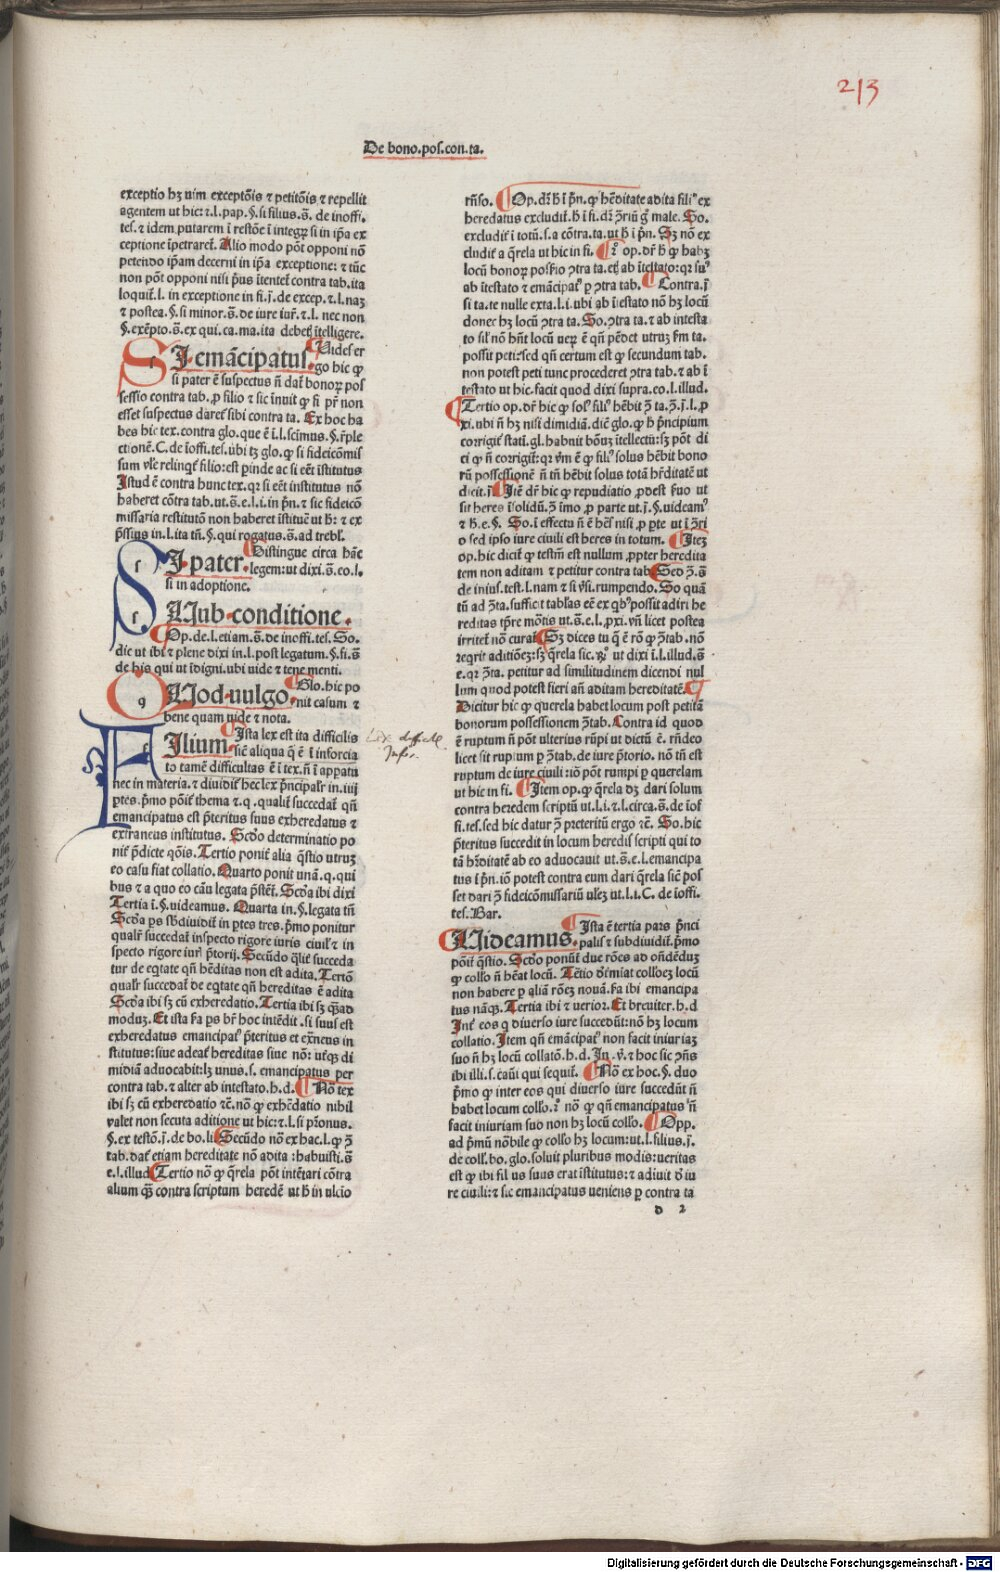 213
De bono.pos.con.ta.
exceptio hꝫ uim exceptõis ⁊ petitõis ⁊ repellit
agentem ut hic:⁊.l.pap.§.si filius.s̃. de inoffi.
tes.⁊ idem putarem ĩ restõe ĩ integꝝ si in ip̃a ex
ceptione ĩpetraret̃. Alio modo põt opponi nõ
petendo ip̃am decerni in ip̃a exceptione: ⁊ tũc
non põt opponi nisi p̃us ĩtentet̃ contra tab.ita
loquit̃.l. in exceptione in fi.j̃.de excep.⁊.l.naꝫ
⁊ postea.§.si minor.s̃.de iure iur̃.⁊.l. nec non
§.exẽpto.s̃.ex qui.ca.ma.ita debet ĩtelligere.
SI emãcipatus. Uides er
go hic ꝙ
si pater ẽ suspectus ñ dat̃ bonoꝝ pos
sessio contra tab.ꝓ filio ⁊ sic ĩnuit ꝙ si pr̃ non
esset suspectus daret̃ sibi contra ta. Ex hoc ha
bes hic tex.contra glo.que ẽ ĩ.l.scimus.§.r̃ple
ctionẽ.C.de ĩoffi.tes.ubi tꝫ glo.ꝙ si fideicõmis
sum ul̃e relinqt̃ filio:est ꝑinde ac si eẽt ĩstitutus
Istud ẽ contra hunc tex.qꝛ si eẽt institutus nõ
haberet cõtra tab.ut.s̃.e.l.i.in p̃n.⁊ sic fideicõ
missaria restitutõ non haberet ĩstituẽ ut h̃: ⁊ ex
p̃ssius in.l.ita tñ.§.qui rogatus.s̃.ad trebl̃.
SI pater. Distingue circa hãc
legem:ut dixi.s̃.eo.l.
si in adoptione.
SUub conditione.
Op.de.l.etiam.s̃.de inoffi.tes. So.
dic ut ibi ⁊ plene dixi in.l.post legatum.§.fi.s̃
de his qui ut ĩdigni.ubi uide ⁊ tene menti.
QUod uulgo. Glo.hic po
nit casum ⁊
bene quam uide ⁊ nota.
FIlium. Ista lex est ita difficilis
sic̃ aliqua q̃ ẽ ĩ inforcia
to tamẽ difficultas ẽ ĩ tex.ñ ĩ apparatu
nec in materia.⁊ diuidit̃ hec lex p̃ncipalr̃ in.iiij
ꝑtes.p̃mo põit̃ thema ⁊.q.qualit̃ succedat̃ qñ
emancipatus est p̃teritus suus exheredatus ⁊
extraneus institutus. Scðo determinatio po
nit̃ p̃dicte qõis. Tertio ponit̃ alia q̃stio utruꝫ
eo casu fiat collatio. Quarto ponit unã.q.qui
bus ⁊ a quo eo cãu legata p̃stẽt̃. Scða ibi dixi
Tertia ĩ.§.uideamus. Quarta in.§.legata tñ
Scða ps sb̃diuidit̃ in ptes tres. p̃mo ponitur
qualr̃ succedat̃ inspecto rigore iuris ciuil̃ ⁊ in
specto rigore iur̃ p̃torij. Secũdo q̃lit̃ succeda
tur de eqtate qñ hẽditas non est adita. Tertio
qualr̃ succedat̃ de eqtate qñ hereditas ẽ adita
Scða ibi sꝫ cũ exheredatio. Tertia ibi sꝫ q̃ꝫad
moduꝫ. Et ista fa ps br̃ hoc intẽdit. si suus est
exheredatus emancipat̃ p̃teritus et ex̃neus in
stitutus:siue adeat̃ hereditas siue nõ: utqꝫ di
midiã aduocabit:lꝫ unus.s. emancipatus per
contra tab.⁊ alter ab intestato.h.d. No tex
ibi sꝫ cũ exheredatio ⁊c̃.nõ ꝙ exhẽdatio nihil
ualet non secuta aditione ut hic:⁊.l.si p̃ronus.
§.ex testõ.j̃.de bo.li. Secũdo nõ ex hac.l.ꝙ ꝯ̃
tab.dat̃ etiam hereditate nõ adita :habuisti.s̃
e.l.illud. Tertio nõ ꝙ q̃rela põt intẽtari cõtra
alium q̃ꝫ contra scriptum heredẽ ut h̃ in ulcio
Lex difficil
Infor.
rñso. Op.dr̃ h̃ ĩ p̃n.ꝙ hẽditate adita filiꝰ ex
heredatus excludit̃.h̃ ĩ fi.dr̃ ꝯ̃riũ g̃ male. So.
excludit̃ ĩ totũ.s.a cõtra.ta.ut h̃ ĩ p̃n. Sꝫ nõ ex
cludit̃ a q̃rela ut hic in fi. op.dr̃ h̃ ꝙ habꝫ
locũ bonoꝝ possio ꝯtra ta.et̃ ab ĩtestato:qꝛ suꝰ
ab ĩtestato ⁊ emãcipatꝰ ꝑ ꝯtra tab. Contra.j̃
si ta.te nulle exta.l.i.ubi ab ĩtestato nõ hꝫ locũ
donec hꝫ locũ ꝯtra ta. So.ꝯtra ta.⁊ ab intesta
to sil̃ nõ hñt locũ ueꝝ ẽ qñ pẽdet utruꝫ fm ta.
possit peti:sed qñ certum est ꝙ secundum tab.
non potest peti tunc procederet ꝯtra tab.⁊ ab ĩ
testato ut hic.facit quod dixi supra.eo.l.illud.
Tertio op.dr̃ hic ꝙ solꝰ filiꝰ hẽbit ꝯ̃ ta.ꝯ̃.j̃.l.ꝓ
xi.ubi ñ hꝫ nisi dimidiã.dic̃ glo.ꝙ h̃ p̃ncipium
corrigit̃ statĩ.gl.habuit bõuꝫ ĩtellectũ:sꝫ põt di
ci ꝙ ñ corrigit̃:qꝛ uꝝ ẽ ꝙ filiꝰ solus hẽbit bono
rũ possessionẽ ñ tñ hẽbit solus totã hr̃ditatẽ ut
dicit.j̃. Itẽ dr̃ hic ꝙ repudiatio ꝓdest suo ut
sit heres ĩ solidũ.ꝯ̃ ĩmo ꝓ parte ut.j̃.§.uideamꝰ
⁊ h̃.e.§. So.ĩ effectu ñ ẽ hẽs nisi ꝓ ꝑte ut ĩ ꝯ̃ri
o sed ipso iure ciuili est heres in totum. Iteꝫ
op.hic dicit̃ ꝙ testm̃ est nullum ꝓpter heredita
tem non aditam ⁊ petitur contra tab. Sed ꝯ̃.s̃
de inius.test.l.nam ⁊ si ꝟsi.rumpendo. So quã
tũ ad ꝯ̃ta.sufficit tablas eẽ ex qbꝰ possit adiri he
reditas tp̃re mõtis ut.s̃.e.l.ꝓxi.uñ licet postea
irritet̃ nõ curat̃ Sꝫ dices tu q̃ ẽ rõ ꝙ ꝯ̃tab.nõ
reqrit̃ aditiõeꝫ:sꝫ q̃rela sic. ut dixi ĩ.l.illud.s̃
e.qꝛ ꝯ̃ta. petitur ad similitudinem dicendi nul
lum quod potest fieri añ aditam hereditatẽ.
Dicitur hic ꝙ querela habet locum post petitã
bonorum possessionem ꝯ̃tab. Contra id quod
ẽ ruptum ñ põt ulterius rũpi ut dictũ ẽ. rñdeo
licet sit ruptum ꝑ ꝯ̃tab.de iure p̃torio. nõ tñ est
ruptum de iure ciuili:iõ põt rumpi ꝑ querelam
ut hic in fi. Item op.ꝙ q̃rela dꝫ dari solum
contra heredem scriptũ ut.l.i.⁊.l.circa.s̃.de ĩof
fi.tes.sed hic datur ꝯ̃ p̃teritũ ergo ⁊c̃. So.hic
p̃teritus succedit in locum heredis scripti qui to
tã hr̃ditatẽ ab eo aduocauit ut.s̃.e.l.emancipa
tus ĩ p̃n.iõ potest contra eum dari q̃rela sic̃ pos
set dari ꝯ̃ fideicõmissariũ ul̃eꝫ ut.l.i.C. de ĩoffi.
tes. Bar.
UIdeamus. Ista ẽ tertia pars p̃nci
palis ⁊ subdiuidit̃.p̃mo
põit̃ q̃stio. Scðo ponũt̃ due rões ad oñdẽduꝫ
ꝙ collo ñ hẽat locũ. Tẽtio dẽmiat collõeꝫ locũ
non habere ꝑ aliã rõeꝫ nouã.fa ibi emancipa
tus nãqꝫ. Tertia ibi ⁊ uerioꝛ. Et breuiter.h.d
Int̃ eos q diuerso iure succedũt:nõ hꝫ locum
collatio. Item qñ emãcipatꝰ non facit iniuriaꝫ
suo ñ hꝫ locũ collatõ.h.d. In.ꝟ̃.⁊ hoc sic ꝯñs
ibi illi.s.caũi qui sequit̃. No ex hoc.§.duo
p̃mo ꝙ inter eos qui diuerso iure succedũt ñ
habet locum collo. nõ ꝙ qñ emancipatus ñ
facit iniuriam suo non hꝫ locũ collo. Opp.
ad p̃mũ nõbile ꝙ collo hꝫ locum:ut.l.filius.j̃.
de coll̃.bo.glo.soluit pluribus modis:ueritas
est ꝙ ibi filius suus erat ĩstitutus:⁊ adiuit ð iu
re ciuili:⁊ sic emancipatus ueniens ꝑ contra ta
d 2
Digitalisierung gefördert durch die Deutsche Forschungsgemeinschaft - DFG